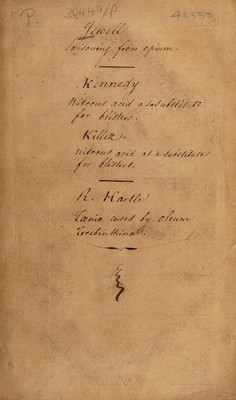 P.
34449/P
42550
Jewell
Poisoning from opium.
Kennedy
Nitrous acid a substitute
for blisters.
Killett.
nitrous acid as a substitute
for blisters.
R. Hartle
Tænia cured by oleum
Terebinthinæ.